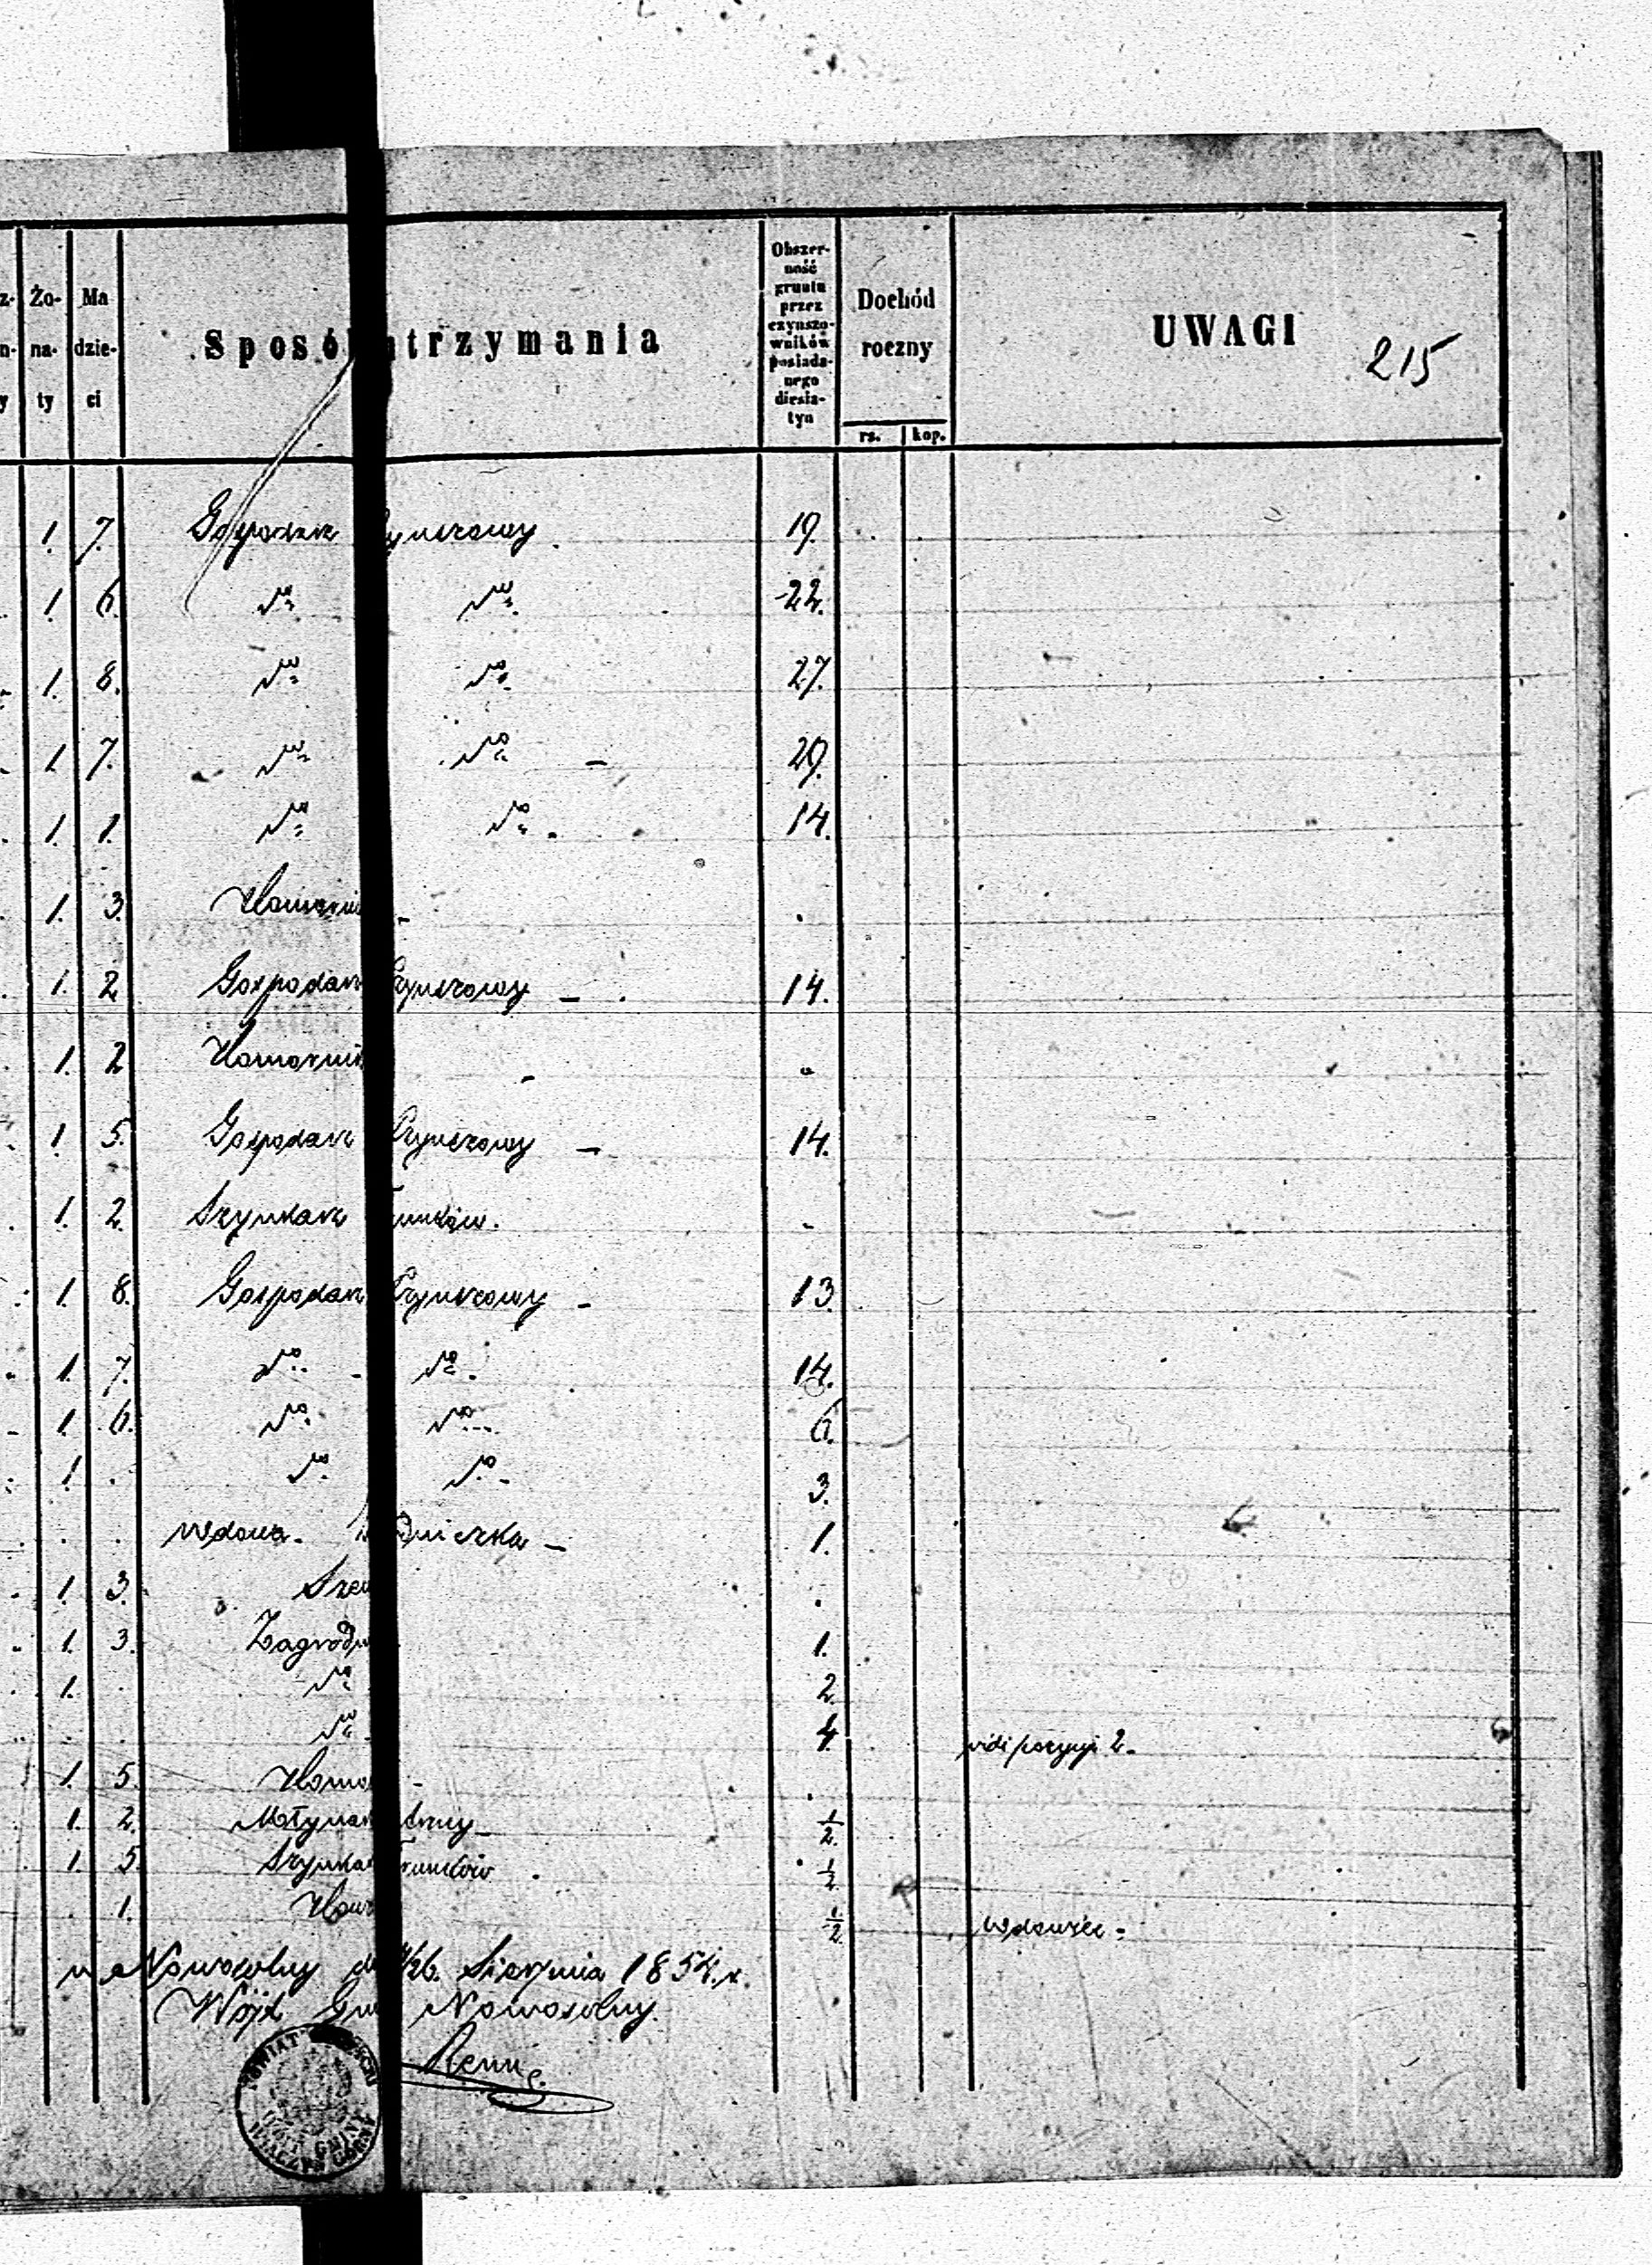 Żo- na- ty
Ma dzie- ci
Sposó trzymania
Obszer- ność gruntu przez czynszo- wników posiada- nego diesia- tyn
Dochód roczny
rs. kop.
UWAGI
215
1. 7. Gospodarz zynszowy. 19.
1. 6. do do 22.
1. 8. do do 27.
1. 7. do do - 29.
1. 1. do do 14.
1. 3. Komorni - .
1. 2 Gospodarz Czynszowy - 14.
1. 2 Komorni - "
1. 5. Gospodarz Czynszowy - 14.
1. 2. Szynkarz runków. -
1. 8. Gospodarz Czynszowy - 13.
1. 7. do do 14.
1. 6. do do 6.
1. . do do 3.
. . wdowa. dniczka - 1.
1. 3. Szew .
1. 3. Zagrod 1.
1. . do 2.
. . do 4. vidi pozycyi 2.
1. 5. Komo - .
1. 2. Młynarz - 1/2.
1. 5. Szynkar Trunków 1/2.
. 1. Kow 1/2. wdowiec -
w Nowosolny d 26. Sierpnia 1854. r.
Wójt Gm Nowosolny.
POWIAT
GMINY